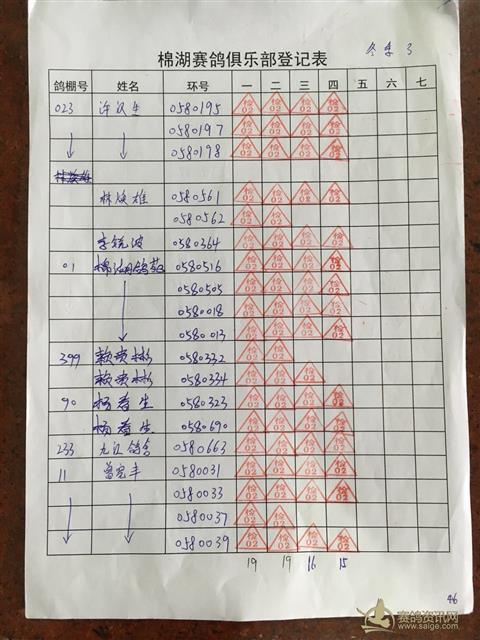 棉湖赛鸽俱乐部登记表 冬季 3
鸽棚号 姓名 环号 一 二 三 四 五 六 七
023 许汉生 0580195 检02 检02 检02 检02
0580197 检02 检02 检02 检02
0580198 检02 检02 检02 检02
林焕雄
林焕雄 0580561 检02 检02 检02 检02
0580562 检02 检02
李锐波 0580364 检02 检02 检02 检02
01 棉湖鸽 0580516 检02 检02 检02 检02
0580505 检02 检02 检02 检02
0580018 检02 检02 检02 检02
0580013 检02 检02 检02 检02
399 赖贵彬 0580332 检02 检02
赖贵彬 0580334 检02 检02 检02
90 杨春生 0580323 检02 检02 检02 检02
杨春生 0580690 检02 检02 检02 检02
233 九江鸽舍 0580663 检02 检02 检02 检02
11 曾宪丰 0580031 检02 检02 检02 检02
0580033 检02 检02 检02 检02
0580037 检02 检02
0580039 检02 检02 检02 检02
19 19 16 15
46
赛鸽资讯网
www.saige.com